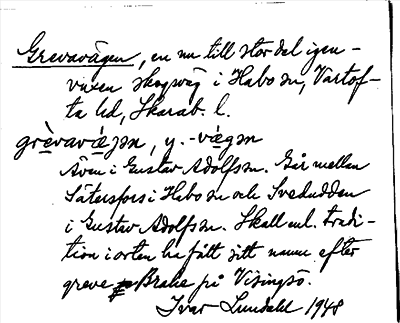 Grevavägen, en nu till stor del igen-
vuxen skogsväg i Habo sn, Vartof-
ta hd, Skarab. l.
grèvavæ̀jən, y. -væ̀gən
Även i Gustav Adolfs sn. Går mellan
Sätersfors i Habo sn och Svedudden
i Gustav Adolfs sn. Skall enl. tradi-
tion i orten ha fått sitt namn efter
greve Brahe på Visingsö.
Ivar Lundahl 1948